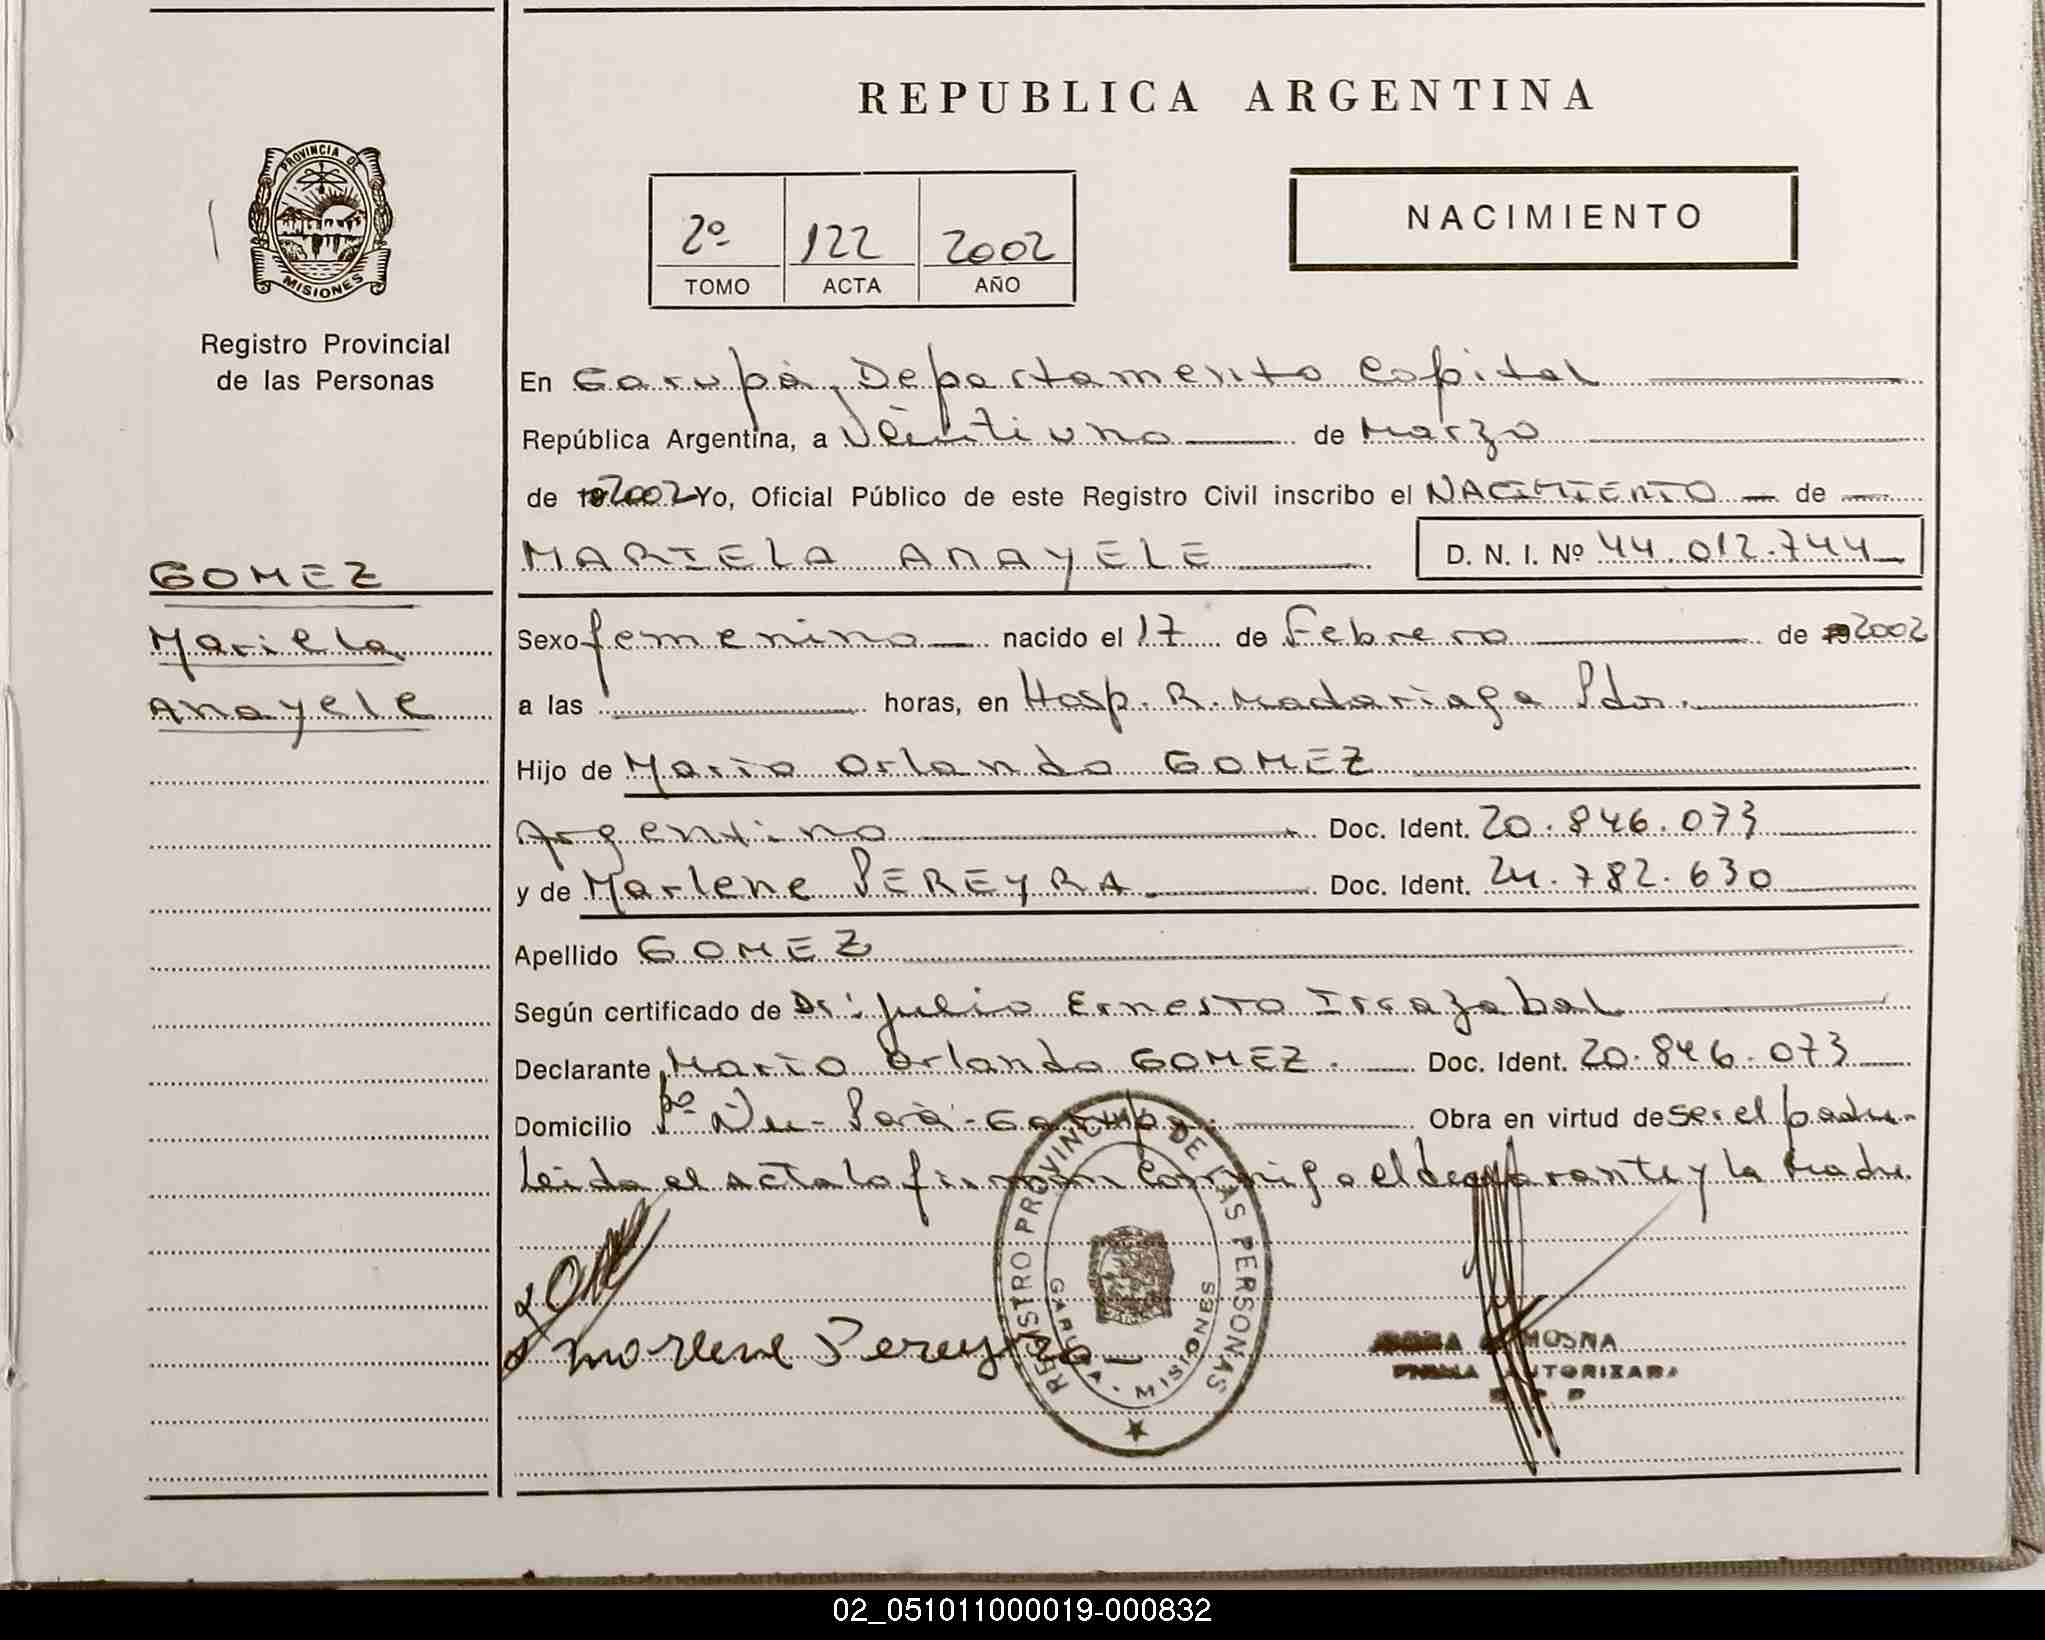 REPUBLICA ARGENTINA
PROVINCIA DE
MISIONES
Registro Provincial
de las Personas
2º 122 2002
TOMO ACTA AÑO
NACIMIENTO
En Garupá, Departamento Capital
República Argentina, a Veintiuno de Marzo
de 192002 Yo, Oficial Público de este Registro Civil inscribo el NACIMIENTO de
MARIELA ANAYELE D. N. I. Nº 44.012.744
GOMEZ
Mariela
Anayele
Sexo femenino nacido el 17 de Febrero de 192002
a las horas, en Hosp. R. Madariaga Pdas.
Hijo de Mario Orlando GOMEZ
Argentino Doc. Ident. 20.846.073
y de Marlene PEREYRA Doc. Ident. 24.782.630
Apellido GOMEZ
Según certificado de Dr: Julio Ernesto Irrazabal
Declarante Mario Orlando GOMEZ. Doc. Ident. 20.846.073
Domicilio Bº Ñu-Porá-Garupá. Obra en virtud de ser el padre.
Leida el acta la firman conmigo el declarante y la Madre.
Marlene Pereyra
REGISTRO PROVINCIAL DE LAS PERSONAS
GARUPA - MISIONES
MOSNA
FIRMA AUTORIZADA
02_051011000019-000832